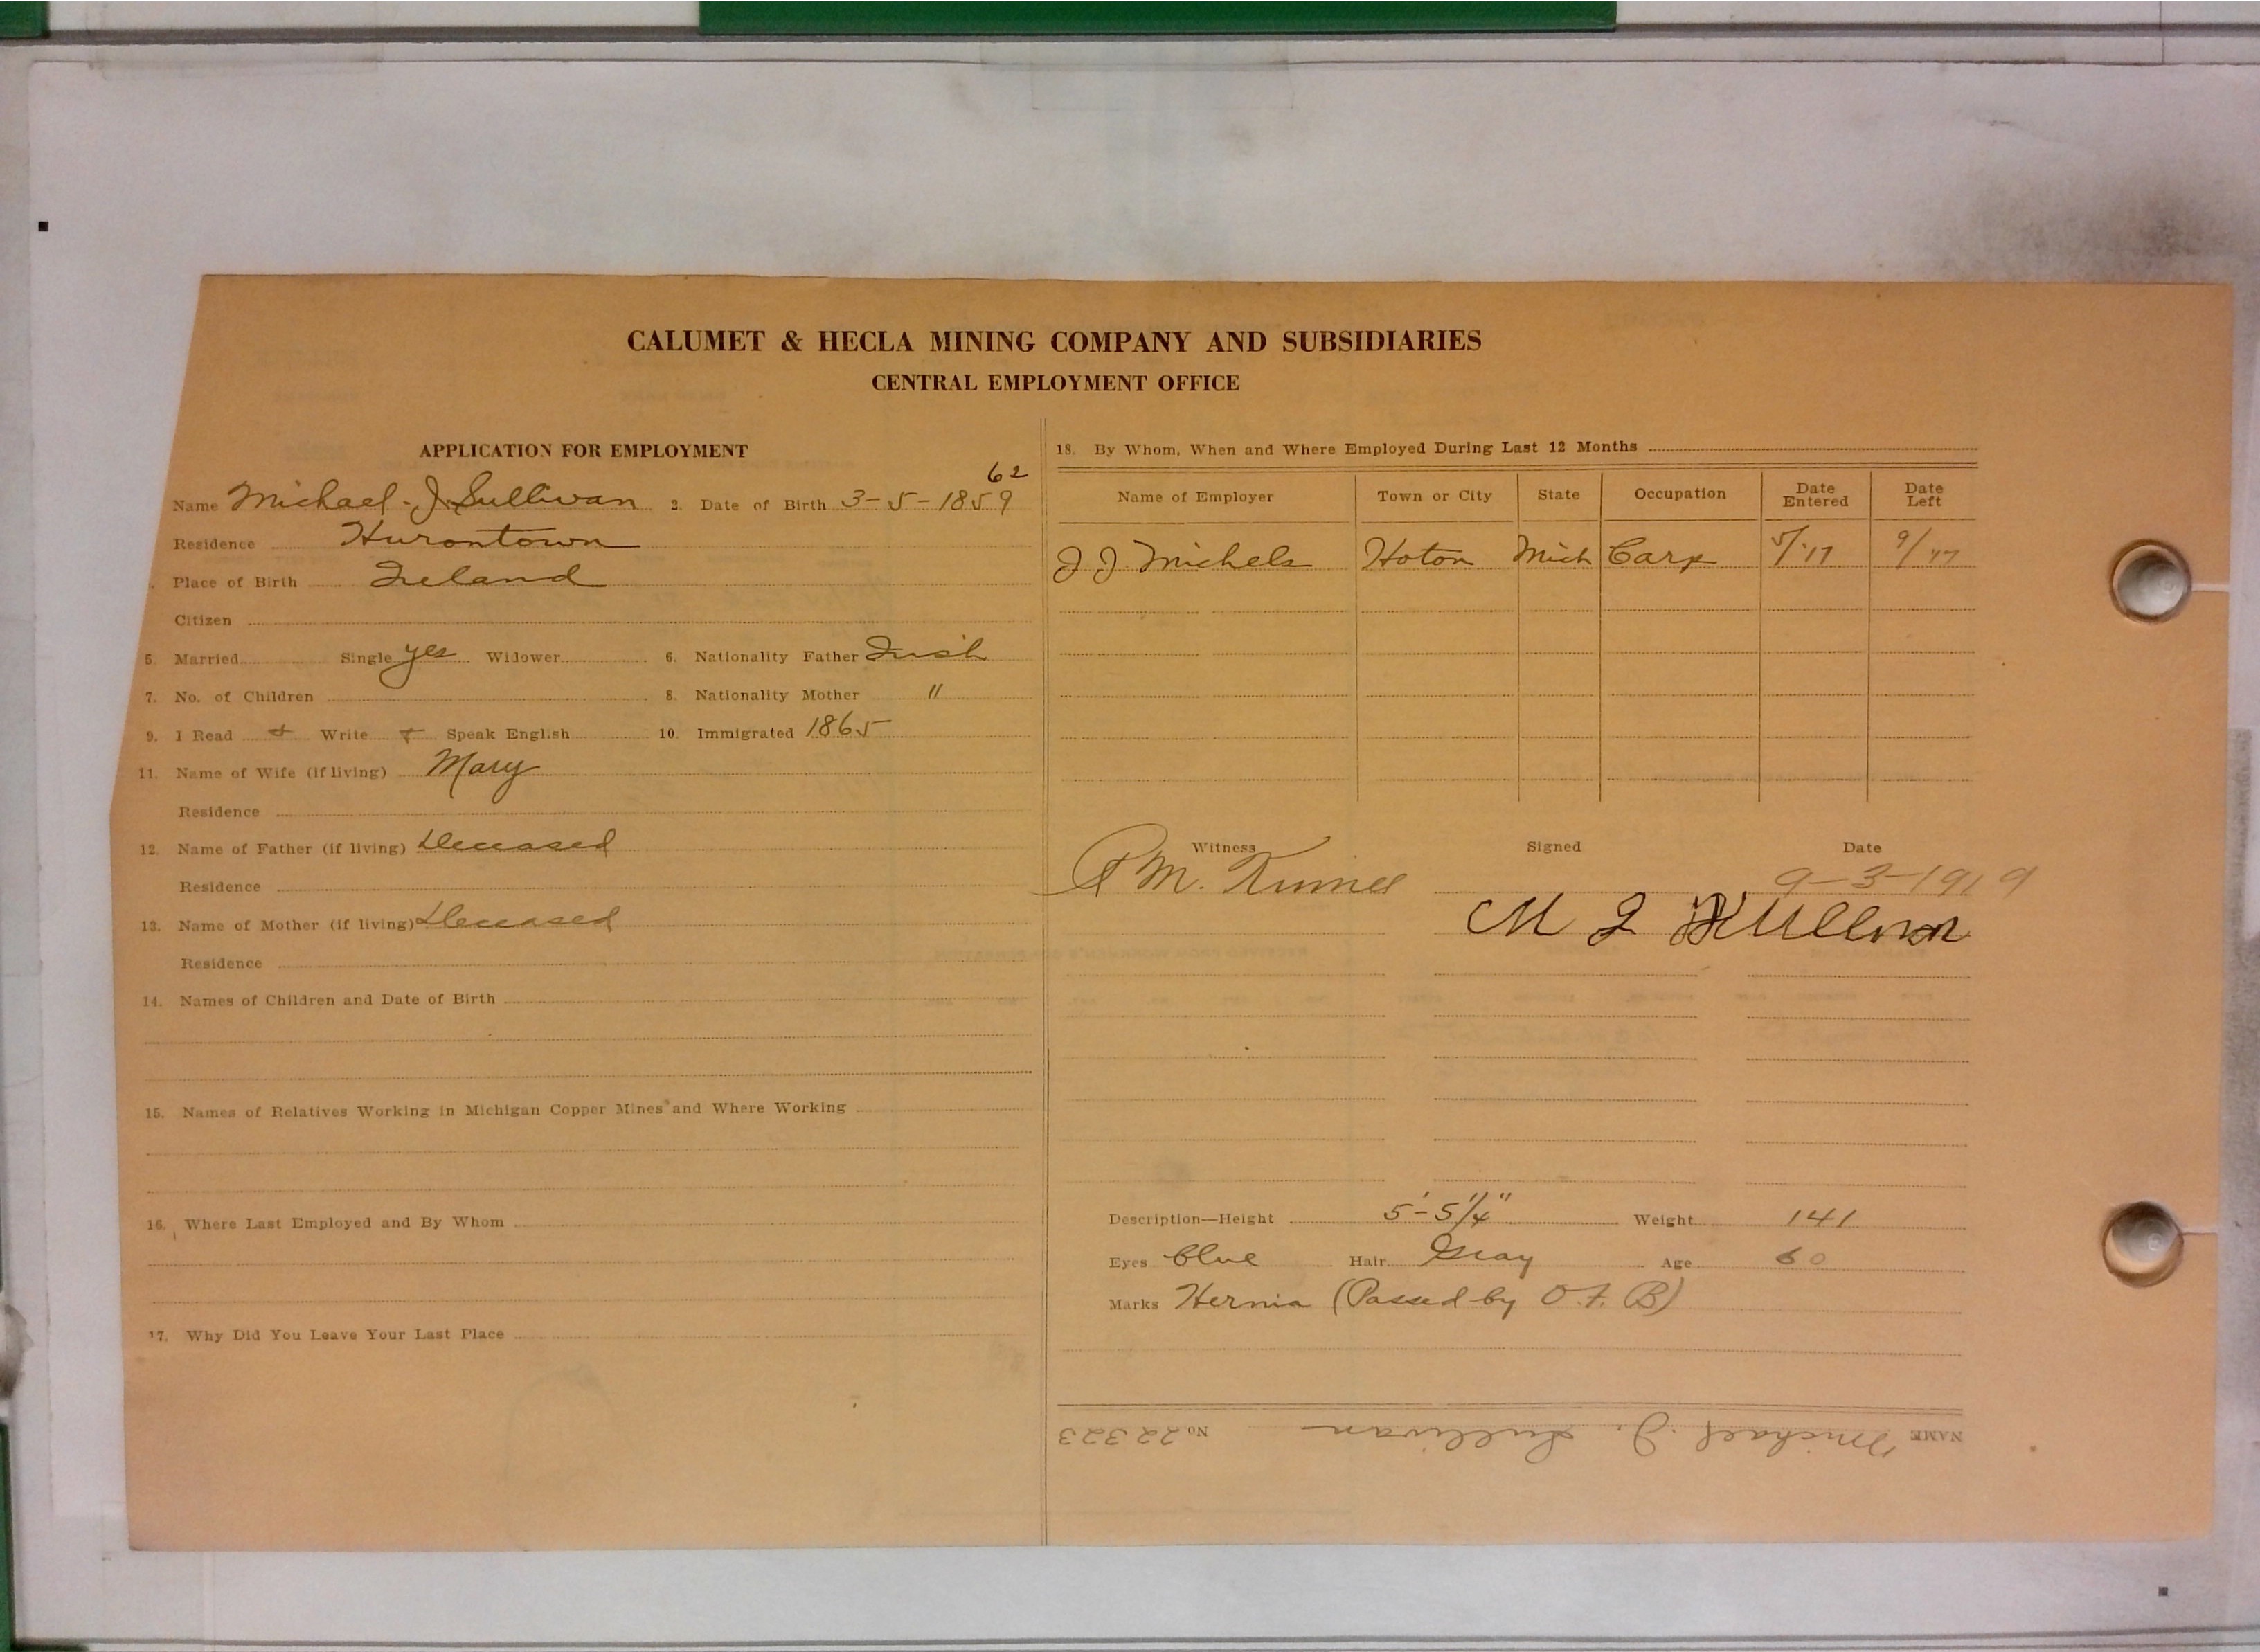 CALUMET & HECLA MINING COMPANY AND SUBSIDIARIES
CENTRAL EMPLOYMENT OFFICE
APPLICATION FOR EMPLOYMENT
62
Name Michael J. Sullivan 2. Date of Birth 3-5-1859
Residence Hurontown
Place of Birth Ireland
Citizen
5. Married Single yes Widower 6. Nationality Father Irish
7. No. of Children 8. Nationality Mother "
9. I Read Write Speak English 10. Immigrated 1865
11. Name of Wife (if living) Mary
Residence
12. Name of Father (if living) Deceased
Residence
13. Name of Mother (if living) Deceased
Residence
14. Names of Children and Date of Birth
15. Names of Relatives Working in Michigan Copper Mines and Where Working
16. Where Last Employed and By Whom
17. Why Did You Leave Your Last Place
18. By Whom, When and Where Employed During Last 12 Months
Name of Employer Town or City State Occupation Date Entered Date Left
J J Michels Hoton Mich Carp 5/17 9/17
Witness Signed Date
M. 9-3-1919
M J Sullivan
Description—Height 5'-5 1/4" Weight 141
Eyes blue Hair Gray Age 60
Marks Hernia (Passed by O. F. B)
NAME Michael J. Sullivan No 22323